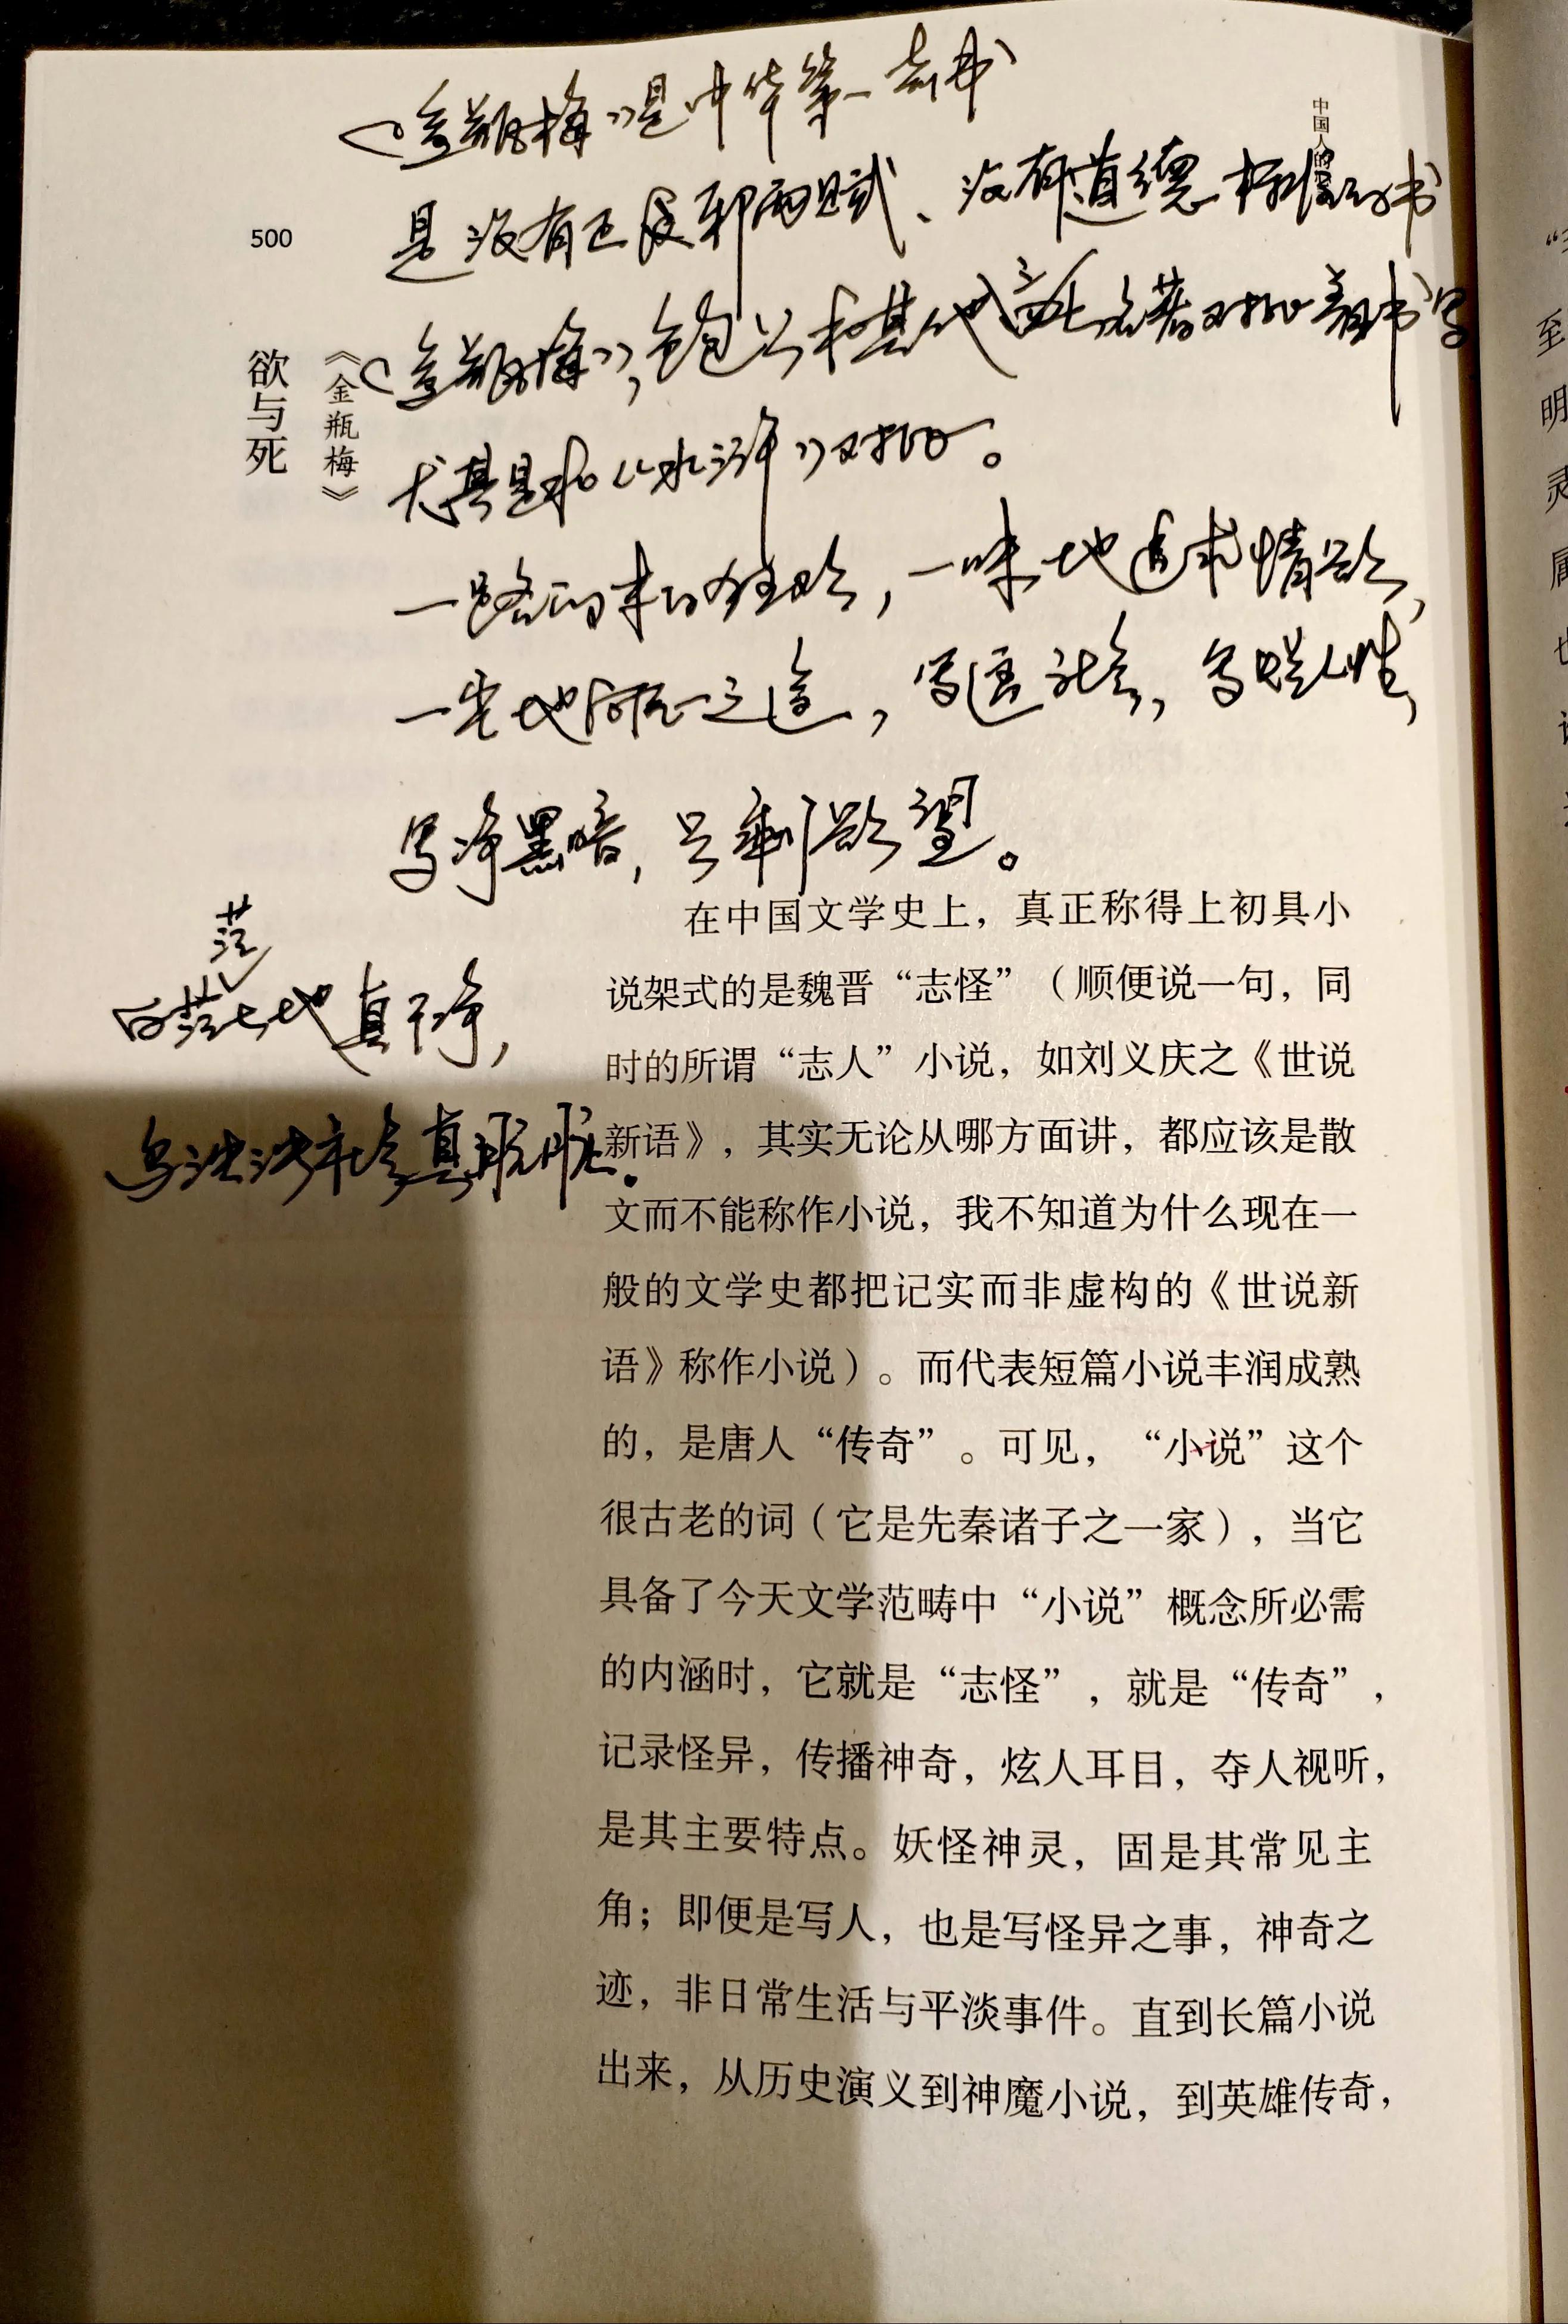 《金瓶梅》是中华第一奇书
中国人的
是没有正反邪两赋、没有道德标准的书
500
《金瓶梅》，和其他名著对比着书写
尤其是和《水浒》对比。
欲与死
《金瓶梅》
一路的狂欢，一味地追求情欲，
一地，写社会，写人性，
写净黑暗，只剩欲望。
白茫茫地真干净，
乌泱泱社会真肮脏。
在中国文学史上，真正称得上初具小
说架式的是魏晋“志怪”（顺便说一句，同
时的所谓“志人”小说，如刘义庆之《世说
新语》，其实无论从哪方面讲，都应该是散
文而不能称作小说，我不知道为什么现在一
般的文学史都把记实而非虚构的《世说新
语》称作小说）。而代表短篇小说丰润成熟
的，是唐人“传奇”。可见，“小说”这个
很古老的词（它是先秦诸子之一家），当它
具备了今天文学范畴中“小说”概念所必需
的内涵时，它就是“志怪”，就是“传奇”，
记录怪异，传播神奇，炫人耳目，夺人视听，
是其主要特点。妖怪神灵，固是其常见主
角；即便是写人，也是写怪异之事，神奇之
迹，非日常生活与平淡事件。直到长篇小说
出来，从历史演义到神魔小说，到英雄传奇，
至
明
灵